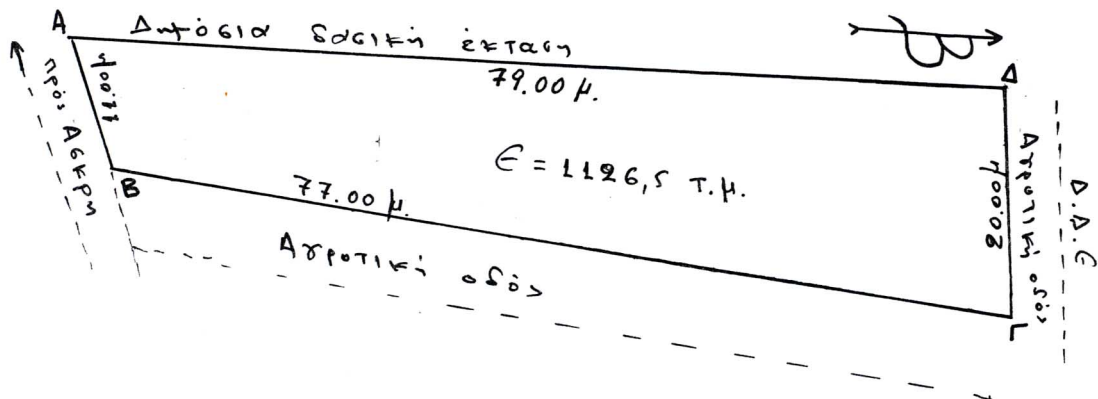 Α
Δημόσια δασική έκταση
79.00 μ.
Δ
πρός Άσκρη
11.00μ
Β
77.00 μ.
Ε = 1126,5 Τ.μ.
20.00μ
Αγροτική οδός
Δ.Δ.Ε
Αγροτική οδός
Γ